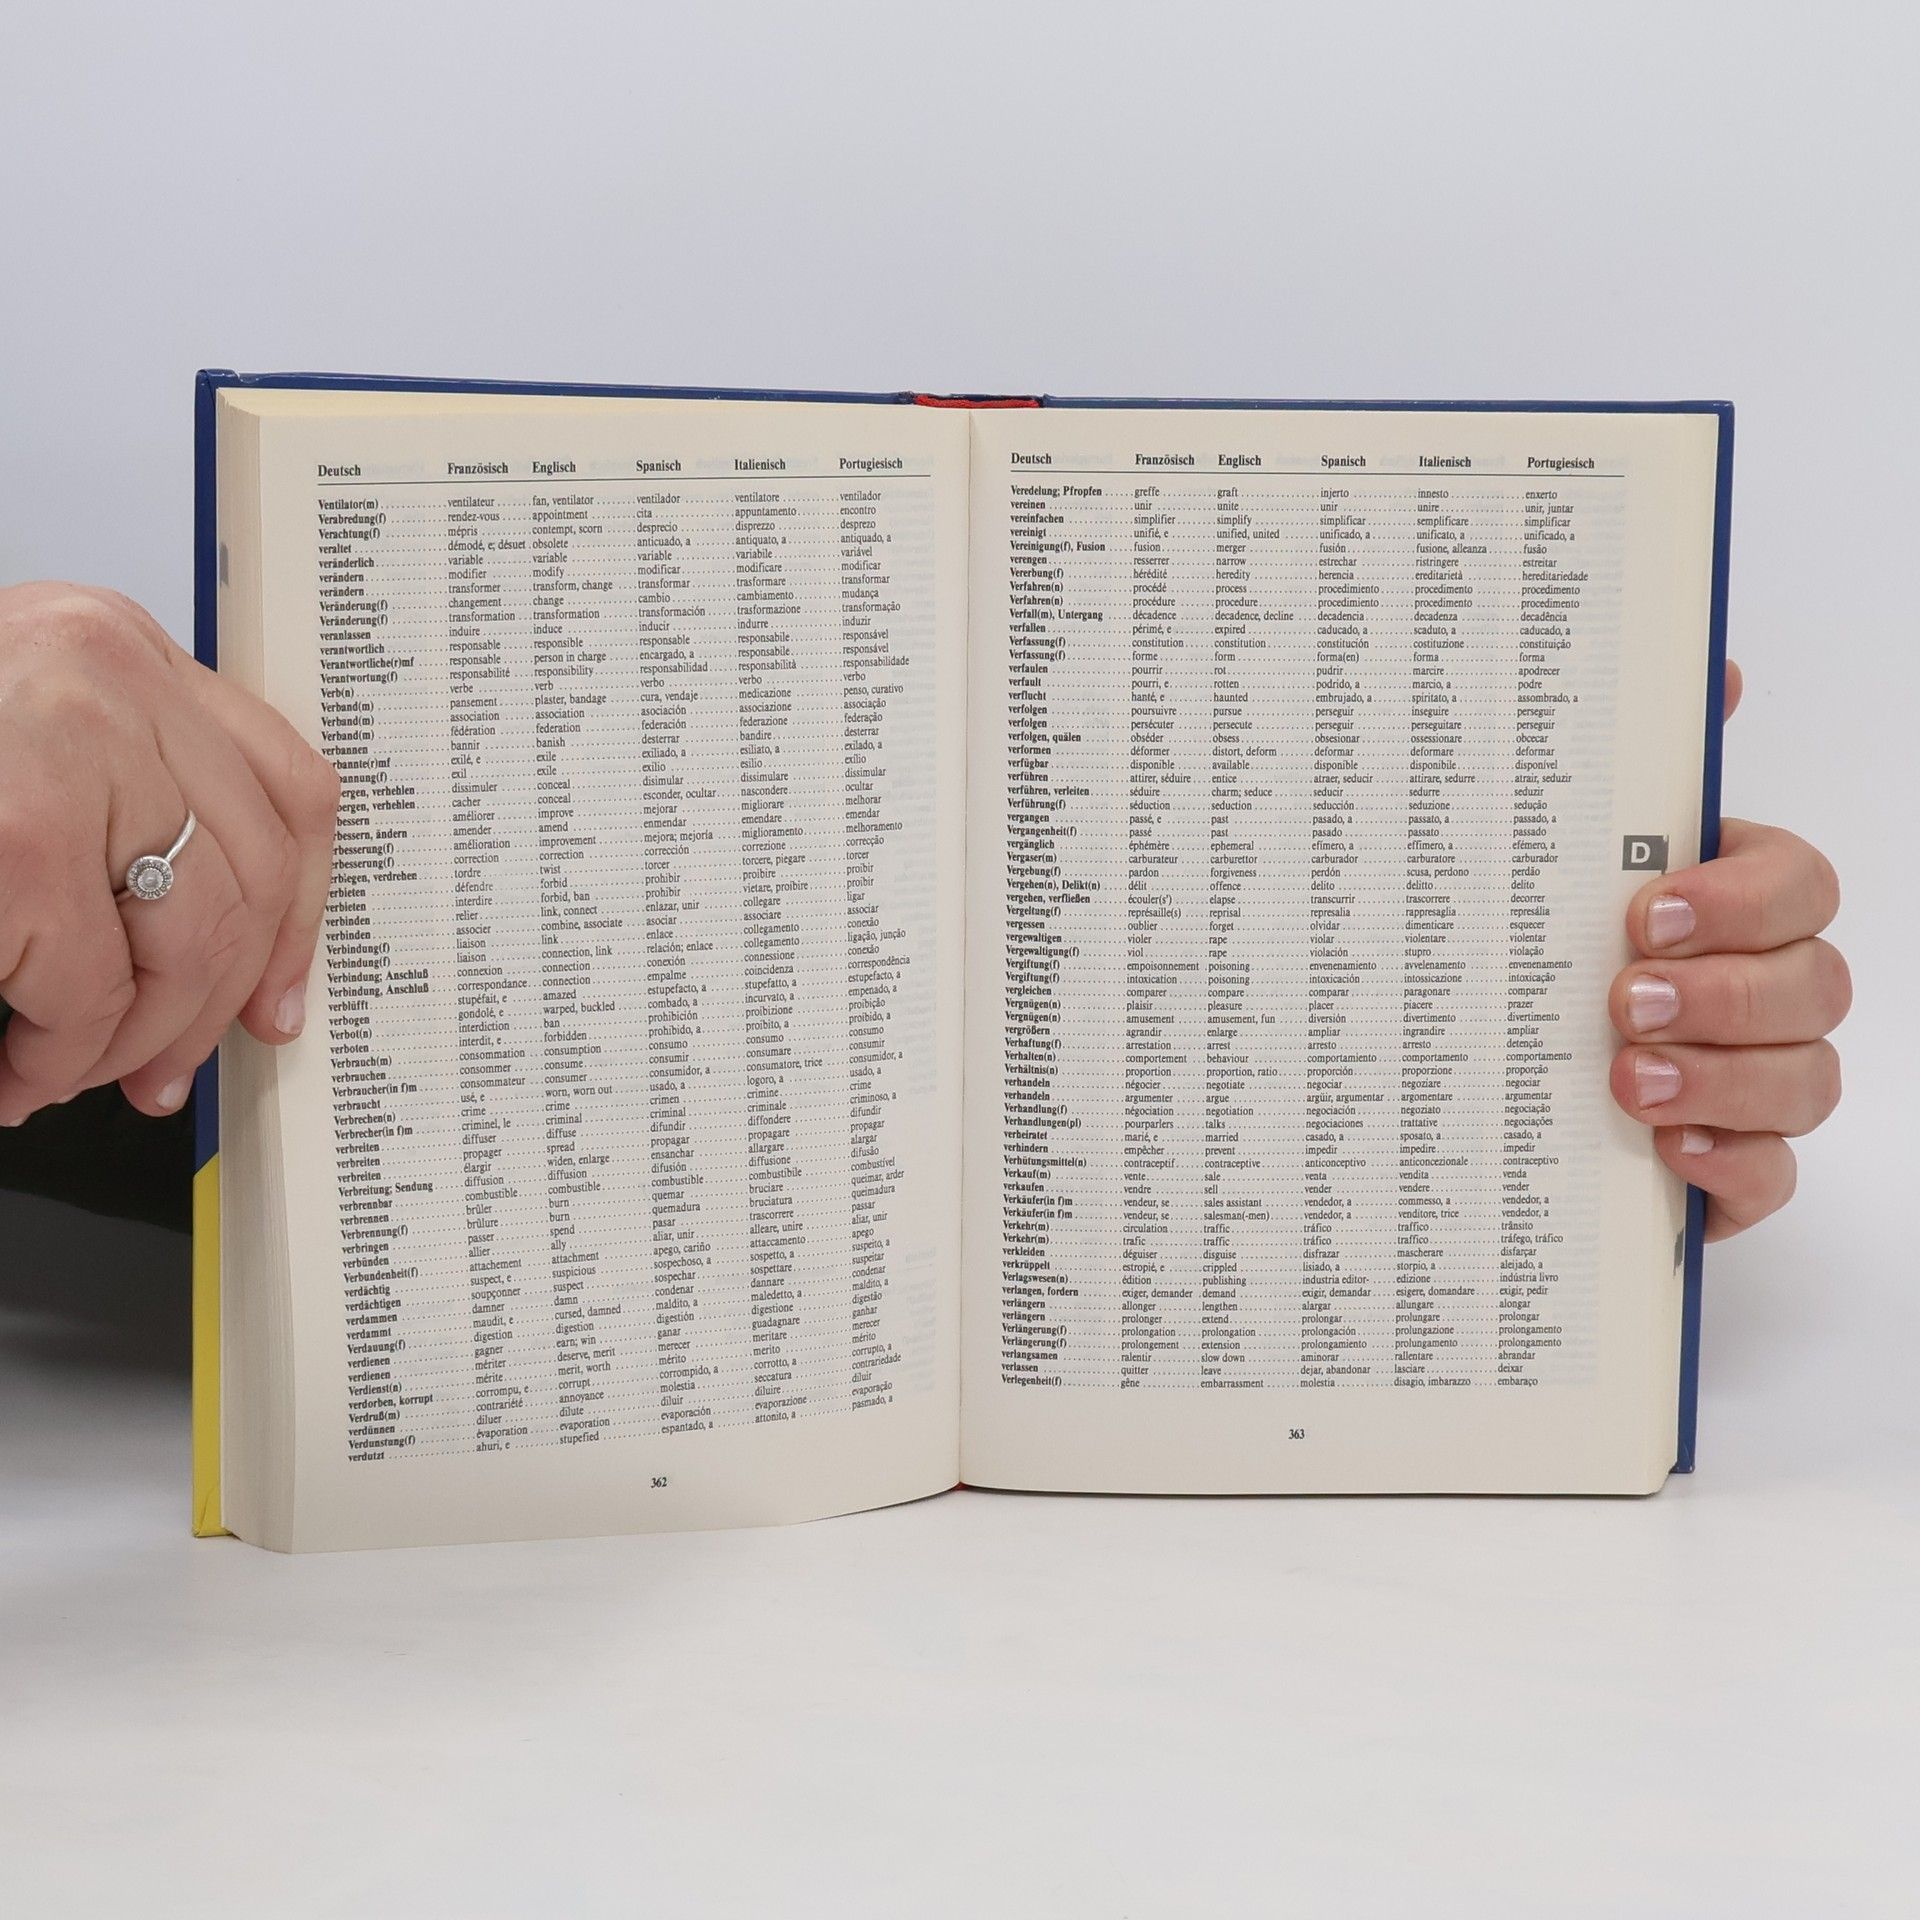 Deutsch Französisch Englisch Spanisch Italienisch Portugiesisch
Ventilator(m) ventilateur fan, ventilator ventilador ventilatore ventilador
Verabredung(f) rendez-vous appointment cita appuntamento encontro
Verachtung(f) mépris contempt, scorn desprecio disprezzo desprezo
veraltet démodé, e; désuet obsolete anticuado, a antiquato, a antiquado, a
veränderlich variable variable variable variabile variável
verändern modifier modify modificar modificare modificar
verändern transformer transform, change transformar trasformare transformar
Veränderung(f) changement change cambio cambiamento mudança
Veränderung(f) transformation transformation transformación trasformazione transformação
veranlassen induire induce inducir indurre induzir
verantwortlich responsable responsible responsable responsabile responsável
Verantwortliche(r)mf responsable person in charge encargado, a responsabile responsável
Verantwortung(f) responsabilité responsibility responsabilidad responsabilità responsabilidade
Verb(n) verbe verb verbo verbo verbo
Verband(m) pansement plaster, bandage cura, vendaje medicazione penso, curativo
Verband(m) association association asociación associazione associação
Verband(m) fédération federation federación federazione federação
verbannen bannir banish desterrar bandire desterrar
rbannte(r)mf exilé, e exile exiliado, a esiliato, a exilado, a
bannung(f) exil exile exilio esilio exílio
ergen, verhehlen dissimuler conceal disimular dissimulare dissimular
bergen, verhehlen cacher conceal esconder, ocultar nascondere ocultar
bessern améliorer improve mejorar migliorare melhorar
rbessern, ändern amender amend enmendar emendare emendar
rbesserung(f) amélioration improvement mejora; mejoría miglioramento melhoramento
rbesserung(f) correction correction corrección correzione correcção
erbiegen, verdrehen tordre twist torcer torcere, piegare torcer
erbieten défendre forbid prohibir proibire proibir
verbieten interdire forbid, ban prohibir vietare, proibire proibir
verbinden relier link, connect enlazar, unir collegare ligar
verbinden associer combine, associate asociar associare associar
Verbindung(f) liaison link enlace collegamento conexão
Verbindung(f) liaison connection, link relación; enlace collegamento ligação, junção
Verbindung; Anschluß connexion connection conexión connessione conexão
Verbindung, Anschluß correspondance connection empalme coincidenza correspondência
verblüfft stupéfait, e amazed estupefacto, a stupefatto, a estupefacto, a
verbogen gondolé, e warped, buckled combado, a incurvato, a empenado, a
Verbot(n) interdiction ban prohibición proibizione proibição
verboten interdit, e forbidden prohibido, a proibito, a proibido, a
Verbrauch(m) consommation consumption consumo consumo consumo
verbrauchen consommer consume consumir consumare consumir
Verbraucher(in f)m consommateur consumer consumidor, a consumatore, trice consumidor, a
verbraucht usé, e worn, worn out usado, a logoro, a usado, a
Verbrechen(n) crime crime crimen crimine crime
Verbrecher(in f)m criminel, le criminal criminal criminale criminoso, a
verbreiten diffuser diffuse difundir diffondere difundir
verbreiten propager spread propagar propagare propagar
verbreiten élargir widen, enlarge ensanchar allargare alargar
Verbreitung; Sendung diffusion diffusion difusión diffusione difusão
verbrennbar combustible combustible combustible combustibile combustível
verbrennen brûler burn quemar bruciare queimar, arder
Verbrennung(f) brûlure burn quemadura bruciatura queimadura
verbringen passer spend pasar trascorrere passar
verbünden allier ally aliar, unir alleare, unire aliar, unir
Verbundenheit(f) attachement attachment apego, cariño attaccamento apego
verdächtig suspect, e suspicious sospechoso, a sospetto, a suspeito, a
verdächtigen soupçonner suspect sospechar sospettare suspeitar
verdammen damner damn condenar dannare condenar
verdammt maudit, e cursed, damned maldito, a maledetto, a maldito, a
Verdauung(f) digestion digestion digestión digestione digestão
verdienen gagner earn; win ganar guadagnare ganhar
verdienen mériter deserve, merit merecer meritare merecer
Verdienst(n) mérite merit, worth mérito merito mérito
verdorben, korrupt corrompu, e corrupt corrompido, a corrotto, a corrupto, a
Verdruß(m) contrariété annoyance molestia seccatura contrariedade
verdünnen diluer dilute diluir diluire diluir
Verdunstung(f) évaporation evaporation evaporación evaporazione evaporação
verdutzt ahuri, e stupefied espantado, a attonito, a pasmado, a
362
Deutsch Französisch Englisch Spanisch Italienisch Portugiesisch
Veredelung; Pfropfen greffe graft injerto innesto enxerto
vereinen unir unite unir unire unir, juntar
vereinfachen simplifier simplify simplificar semplificare simplificar
vereinigt unifié, e unified, united unificado, a unificato, a unificado, a
Vereinigung(f), Fusion fusion merger fusión fusione, alleanza fusão
verengen resserrer narrow estrechar ristringere estreitar
Vererbung(f) hérédité heredity herencia ereditarietà hereditariedade
Verfahren(n) procédé process procedimiento procedimento procedimento
Verfahren(n) procédure procedure procedimiento procedimento procedimento
Verfall(m), Untergang décadence decadence, decline decadencia decadenza decadência
verfallen périmé, e expired caducado, a scaduto, a caducado, a
Verfassung(f) constitution constitution constitución costituzione constituição
Verfassung(f) forme form forma(en) forma forma
verfaulen pourrir rot pudrir marcire apodrecer
verfault pourri, e rotten podrido, a marcio, a podre
verflucht hanté, e haunted embrujado, a spiritato, a assombrado, a
verfolgen poursuivre pursue perseguir inseguire perseguir
verfolgen persécuter persecute perseguir perseguitare perseguir
verfolgen, quälen obséder obsess obsesionar ossessionare obcecar
verformen déformer distort, deform deformar deformare deformar
verfügbar disponible available disponible disponibile disponível
verführen attirer, séduire entice atraer, seducir attirare, sedurre atrair, seduzir
verführen, verleiten séduire charm; seduce seducir sedurre seduzir
Verführung(f) séduction seduction seducción seduzione sedução
vergangen passé, e past pasado, a passato, a passado, a
Vergangenheit(f) passé past pasado passato passado
vergänglich éphémère ephemeral efímero, a effimero, a efémero, a
Vergaser(m) carburateur carburettor carburador carburatore carburador
Vergebung(f) pardon forgiveness perdón scusa, perdono perdão
Vergehen(n), Delikt(n) délit offence delito delitto delito
vergehen, verfließen écouler(s') elapse transcurrir trascorrere decorrer
Vergeltung(f) représaille(s) reprisal represalia rappresaglia represália
vergessen oublier forget olvidar dimenticare esquecer
vergewaltigen violer rape violar violentare violentar
Vergewaltigung(f) viol rape violación stupro violação
Vergiftung(f) empoisonnement poisoning envenenamiento avvelenamento envenenamento
Vergiftung(f) intoxication poisoning intoxicación intossicazione intoxicação
vergleichen comparer compare comparar paragonare comparar
Vergnügen(n) plaisir pleasure placer piacere prazer
Vergnügen(n) amusement amusement, fun diversión divertimento divertimento
vergrößern agrandir enlarge ampliar ingrandire ampliar
Verhaftung(f) arrestation arrest arresto arresto detenção
Verhalten(n) comportement behaviour comportamiento comportamento comportamento
Verhältnis(n) proportion proportion, ratio proporción proporzione proporção
verhandeln négocier negotiate negociar negoziare negociar
verhandeln argumenter argue argüir, argumentar argomentare argumentar
Verhandlung(f) négociation negotiation negociación negoziato negociação
Verhandlungen(pl) pourparlers talks negociaciones trattative negociações
verheiratet marié, e married casado, a sposato, a casado, a
verhindern empêcher prevent impedir impedire impedir
Verhütungsmittel(n) contraceptif contraceptive anticonceptivo anticoncezionale contraceptivo
Verkauf(m) vente sale venta vendita venda
verkaufen vendre sell vender vendere vender
Verkäufer(in f)m vendeur, se sales assistant vendedor, a commesso, a vendedor, a
Verkäufer(in f)m vendeur, se salesman(-men) vendedor, a venditore, trice vendedor, a
Verkehr(m) circulation traffic tráfico traffico trânsito
Verkehr(m) trafic traffic tráfico traffico tráfego, tráfico
verkleiden déguiser disguise disfrazar mascherare disfarçar
verkrüppelt estropié, e crippled lisiado, a storpio, a aleijado, a
Verlagswesen(n) édition publishing industria editor- edizione indústria livro
verlangen, fordern exiger, demander demand exigir, demandar esigere, domandare exigir, pedir
verlängern allonger lengthen alargar allungare alongar
verlängern prolonger extend prolongar prolungare prolongar
Verlängerung(f) prolongation prolongation prolongación prolungazione prolongamento
Verlängerung(f) prolongement extension prolongamiento prolungamento prolongamento
verlangsamen ralentir slow down aminorar rallentare abrandar
verlassen quitter leave dejar, abandonar lasciare deixar
Verlegenheit(f) gêne embarrassment molestia disagio, imbarazzo embaraço
363
D